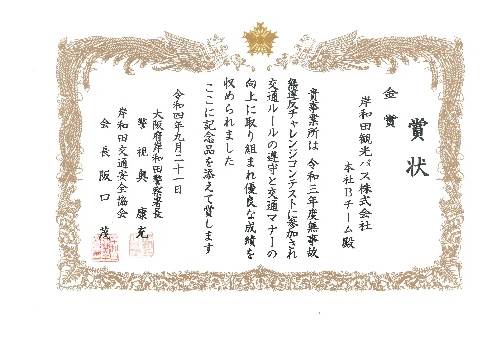 賞状
金賞
岸和田観光バス株式会社
本社Bチーム殿
貴事業所は 令和三年度無事故
無違反チャレンジコンテストに参加され
交通ルールの遵守と交通マナーの
向上に取り組まれ優良な成績を
収められました
ここに記念品を添えて賞します
令和四年九月二十一日
大阪府岸和田警察署長
警視 奥 康充
岸和田交通安全協会
会長 阪口 茂